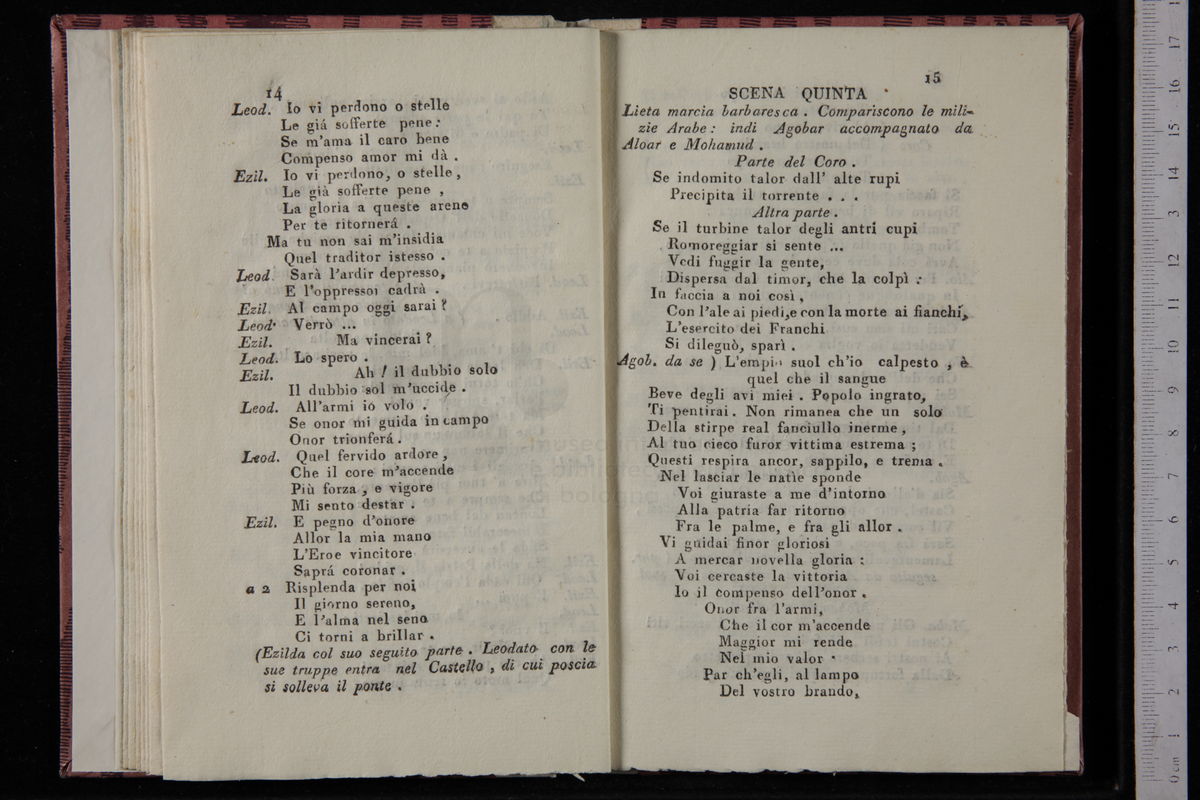 14
Leod. Io vi perdono o stelle
Le giá sofferte pene:
Se m'ama il caro bene
Compenso amor mi dà .
Ezil. Io vi perdono, o stelle,
Le già sofferte pene ,
La gloria a queste arene
Per te ritornerá .
Ma tu non sai m'insidia
Quel traditor istesso .
Leod. Sarà l'ardir depresso,
E l'oppressoi cadrà .
Ezil. Al campo oggi sarai ?
Leod. Verrò ...
Ezil. Ma vincerai ?
Leod. Lo spero .
Ezil. Ah ! il dubbio solo
Il dubbio sol m'uccide .
Leod. All'armi io volo .
Se onor mi guida in campo
Onor trionferá .
Leod. Quel fervido ardore ,
Che il core m'accende
Più forza , e vigore
Mi sento destar .
Ezil. E pegno d'onore
Allor la mia mano
L'Eroe vincitore
Saprá coronar .
a 2 Risplenda per noi
Il giorno sereno,
E l'alma nel seno
Ci torni a brillar .
(Ezilda col suo seguito parte . Leodato con le
sue truppe entra nel Castello , di cui poscia
si solleva il ponte .
15
SCENA QUINTA
Lieta marcia barbaresca . Compariscono le mili-
zie Arabe : indi Agobar accompagnato da
Aloar e Mohamud .
Parte del Coro .
Se indomito talor dall' alte rupi
Precipita il torrente . . .
Altra parte .
Se il turbine talor degli antri cupi
Romoreggiar si sente ...
Vedi fuggir la gente,
Dispersa dal timor, che la colpì :
In faccia a noi così ,
Con l'ale ai piedi,e con la morte ai fianchi,
L'esercito dei Franchi
Si dileguò, sparì .
Agob. da se ) L'empio suol ch'io calpesto , è
quel che il sangue
Beve degli avi miei . Popolo ingrato,
Ti pentirai . Non rimanea che un solo
Della stirpe real fanciullo inerme ,
Al tuo cieco furor vittima estrema ;
Questi respira ancor, sappilo, e trema .
Nel lasciar le natìe sponde
Voi giuraste a me d'intorno
Alla patria far ritorno
Fra le palme, e fra gli allor .
Vi guidai finor gloriosi
A mercar novella gloria :
Voi cercaste la vittoria
Io il compenso dell'onor .
Onor fra l'armi,
Che il cor m'accende
Maggior mi rende
Nel mio valor .
Par ch'egli, al lampo
Del vostro brando,